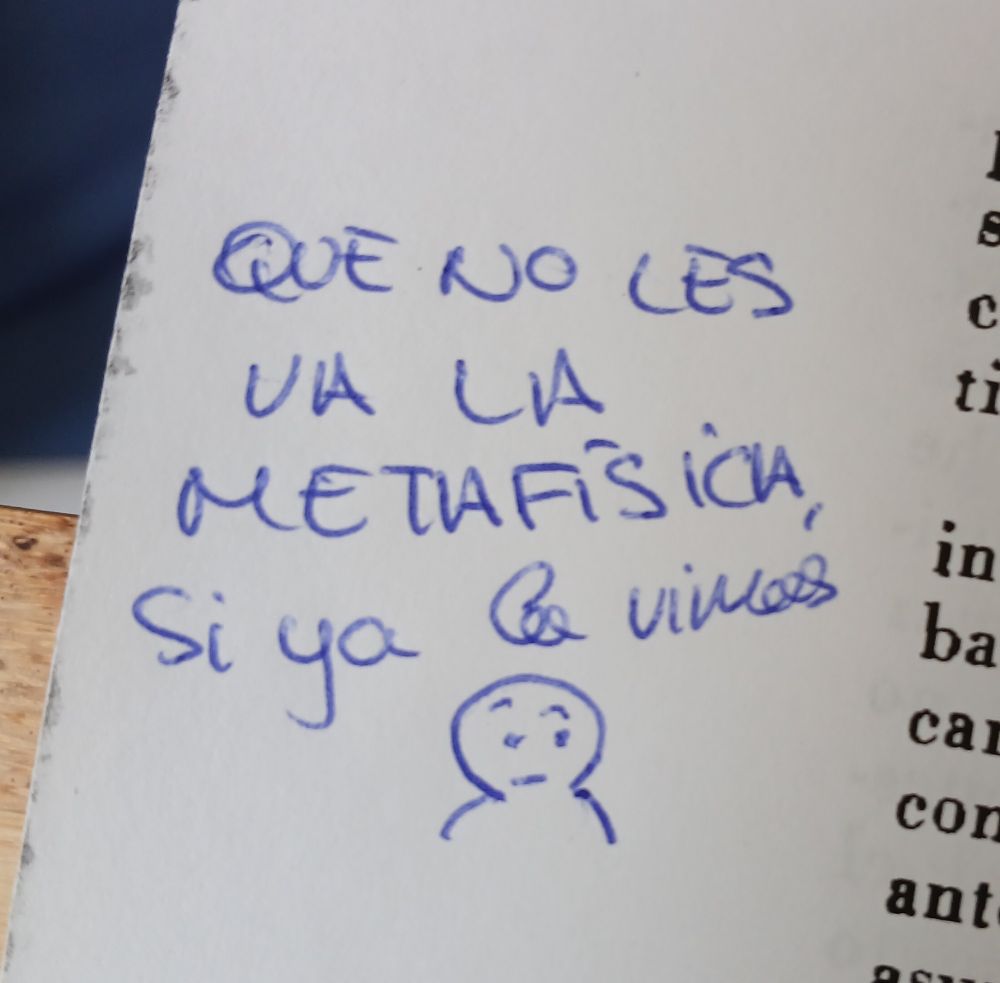 QUE NO LES
VA LA
METAFÍSICA,
Si ya la vimos
s
c
ti
in
ba
car
con
ant